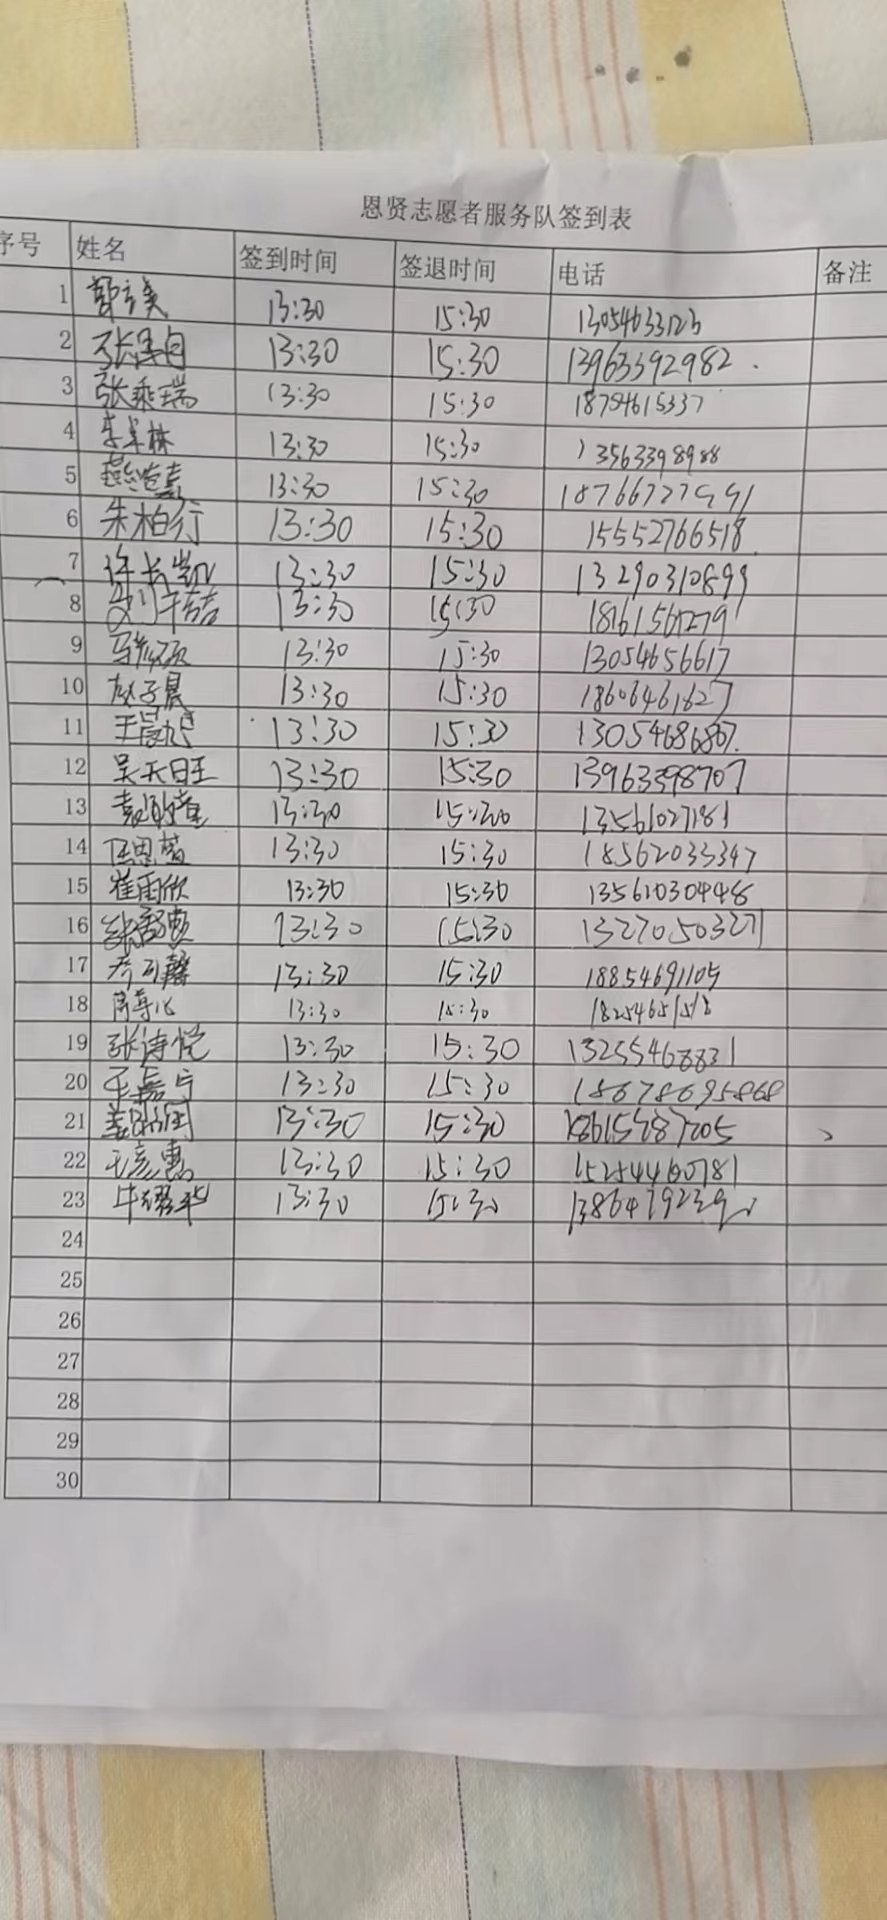 恩贤志愿者服务队签到表
序号 姓名 签到时间 签退时间 电话 备注
1 13:30 15:30 13054633123
2 13:30 15:30 13963392982
3 张乘瑞 13:30 15:30 18754615337
4 13:30 15:30 13563398988
5 13:30 15:30
6 朱柏行 13:30 15:30 15552766518
7 许长凯 13:30 15:30 13290310899
8 13:30 15:30
9 13:30 15:30 13054656617
10 赵子晨 13:30 15:30 18606461627
11 王晨旭 13:30 15:30 13054686807
12 吴天日王 13:30 15:30 13963398707
13 13:30 13561027181
14 13:30 15:30 18562033347
15 崔雨欣 13:30 15:30 13561030448
16 13:30 15:30 13270503271
17 13:30 15:30 18854691105
18 13:30 15:30
19 张诗悦 13:30 15:30 13255468831
20 王嘉宁 13:30 15:30 18678695868
21 13:30 15:30
22 王彦惠 13:30 15:30 15254460781
23 13:30 15:30
24
25
26
27
28
29
30